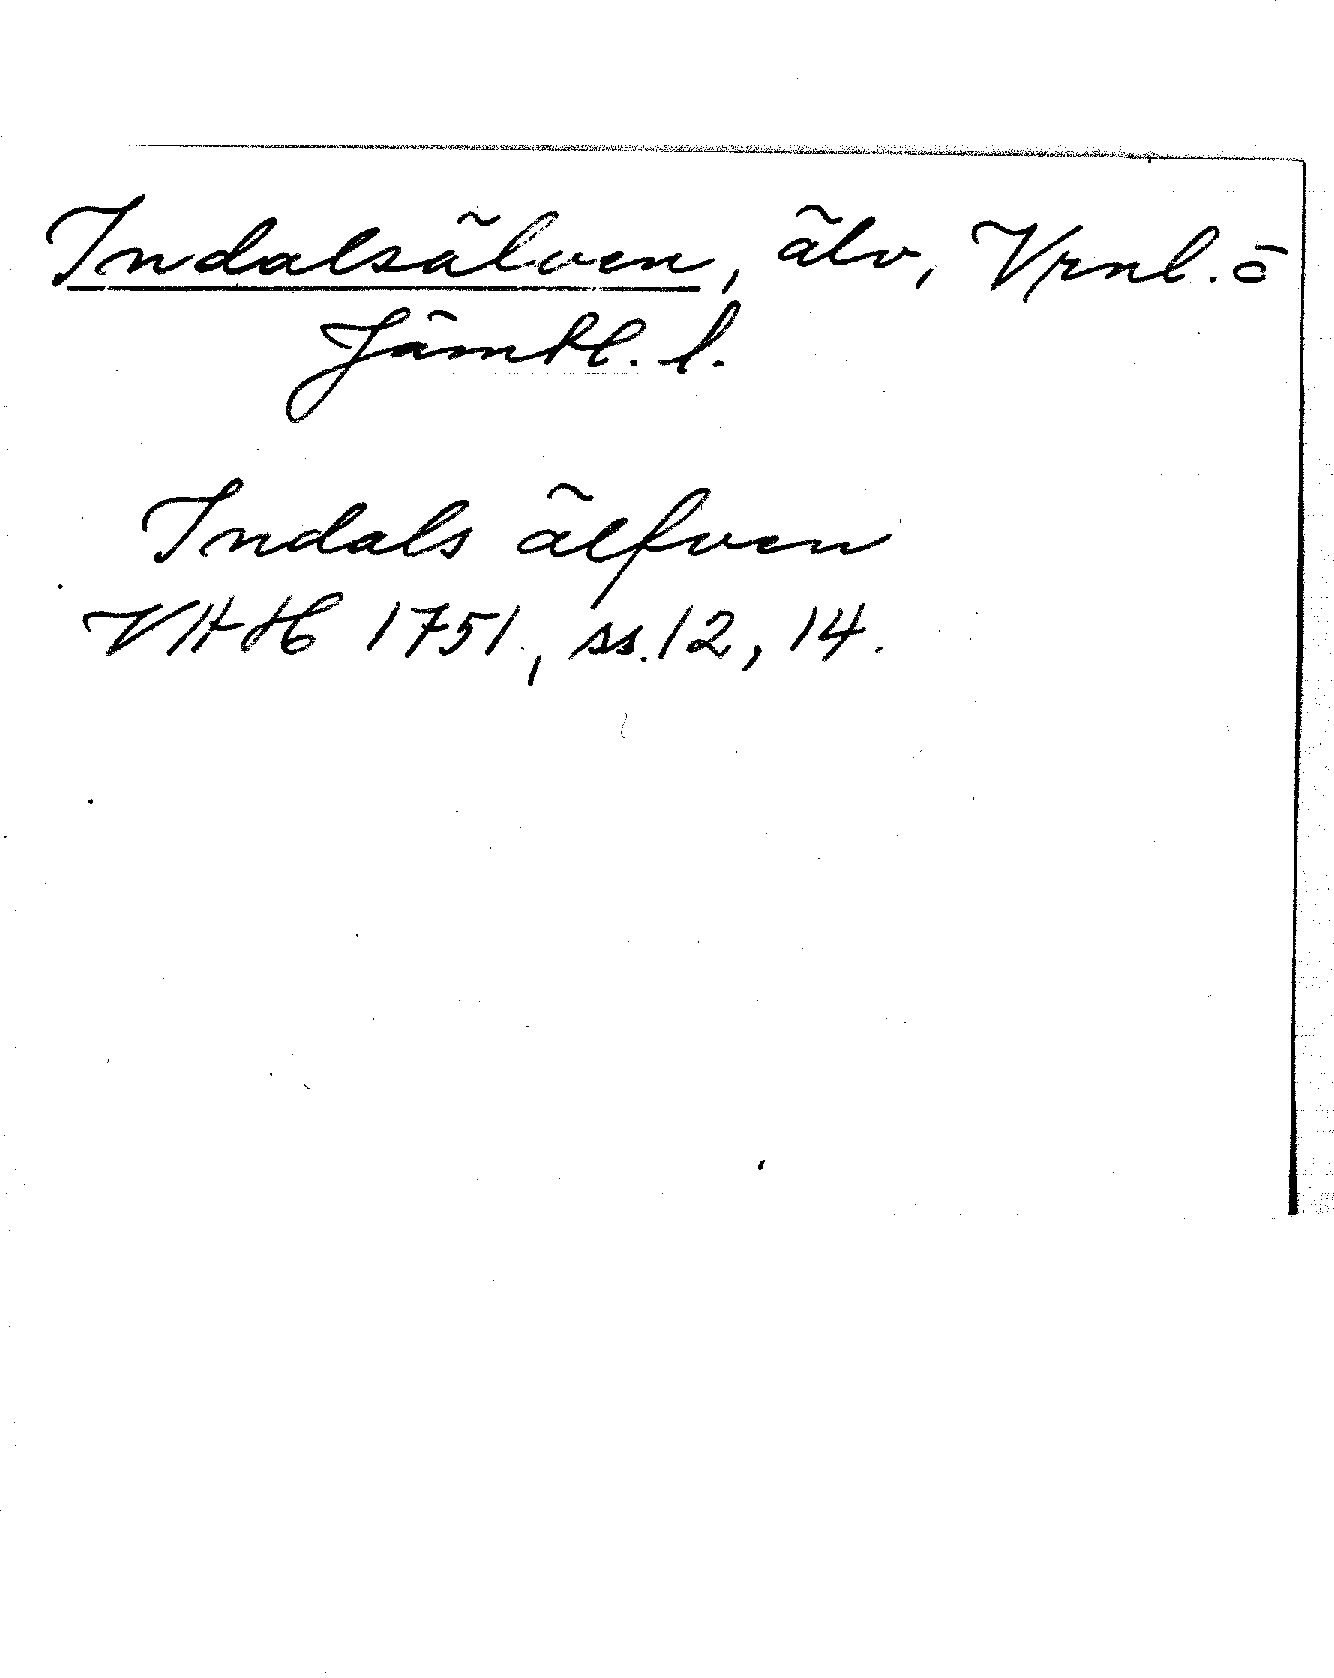 Indalsälven, älv, Vrnl. o
Jämtl. l.
Indals älfven
VHH 1751, ss. 12, 14.